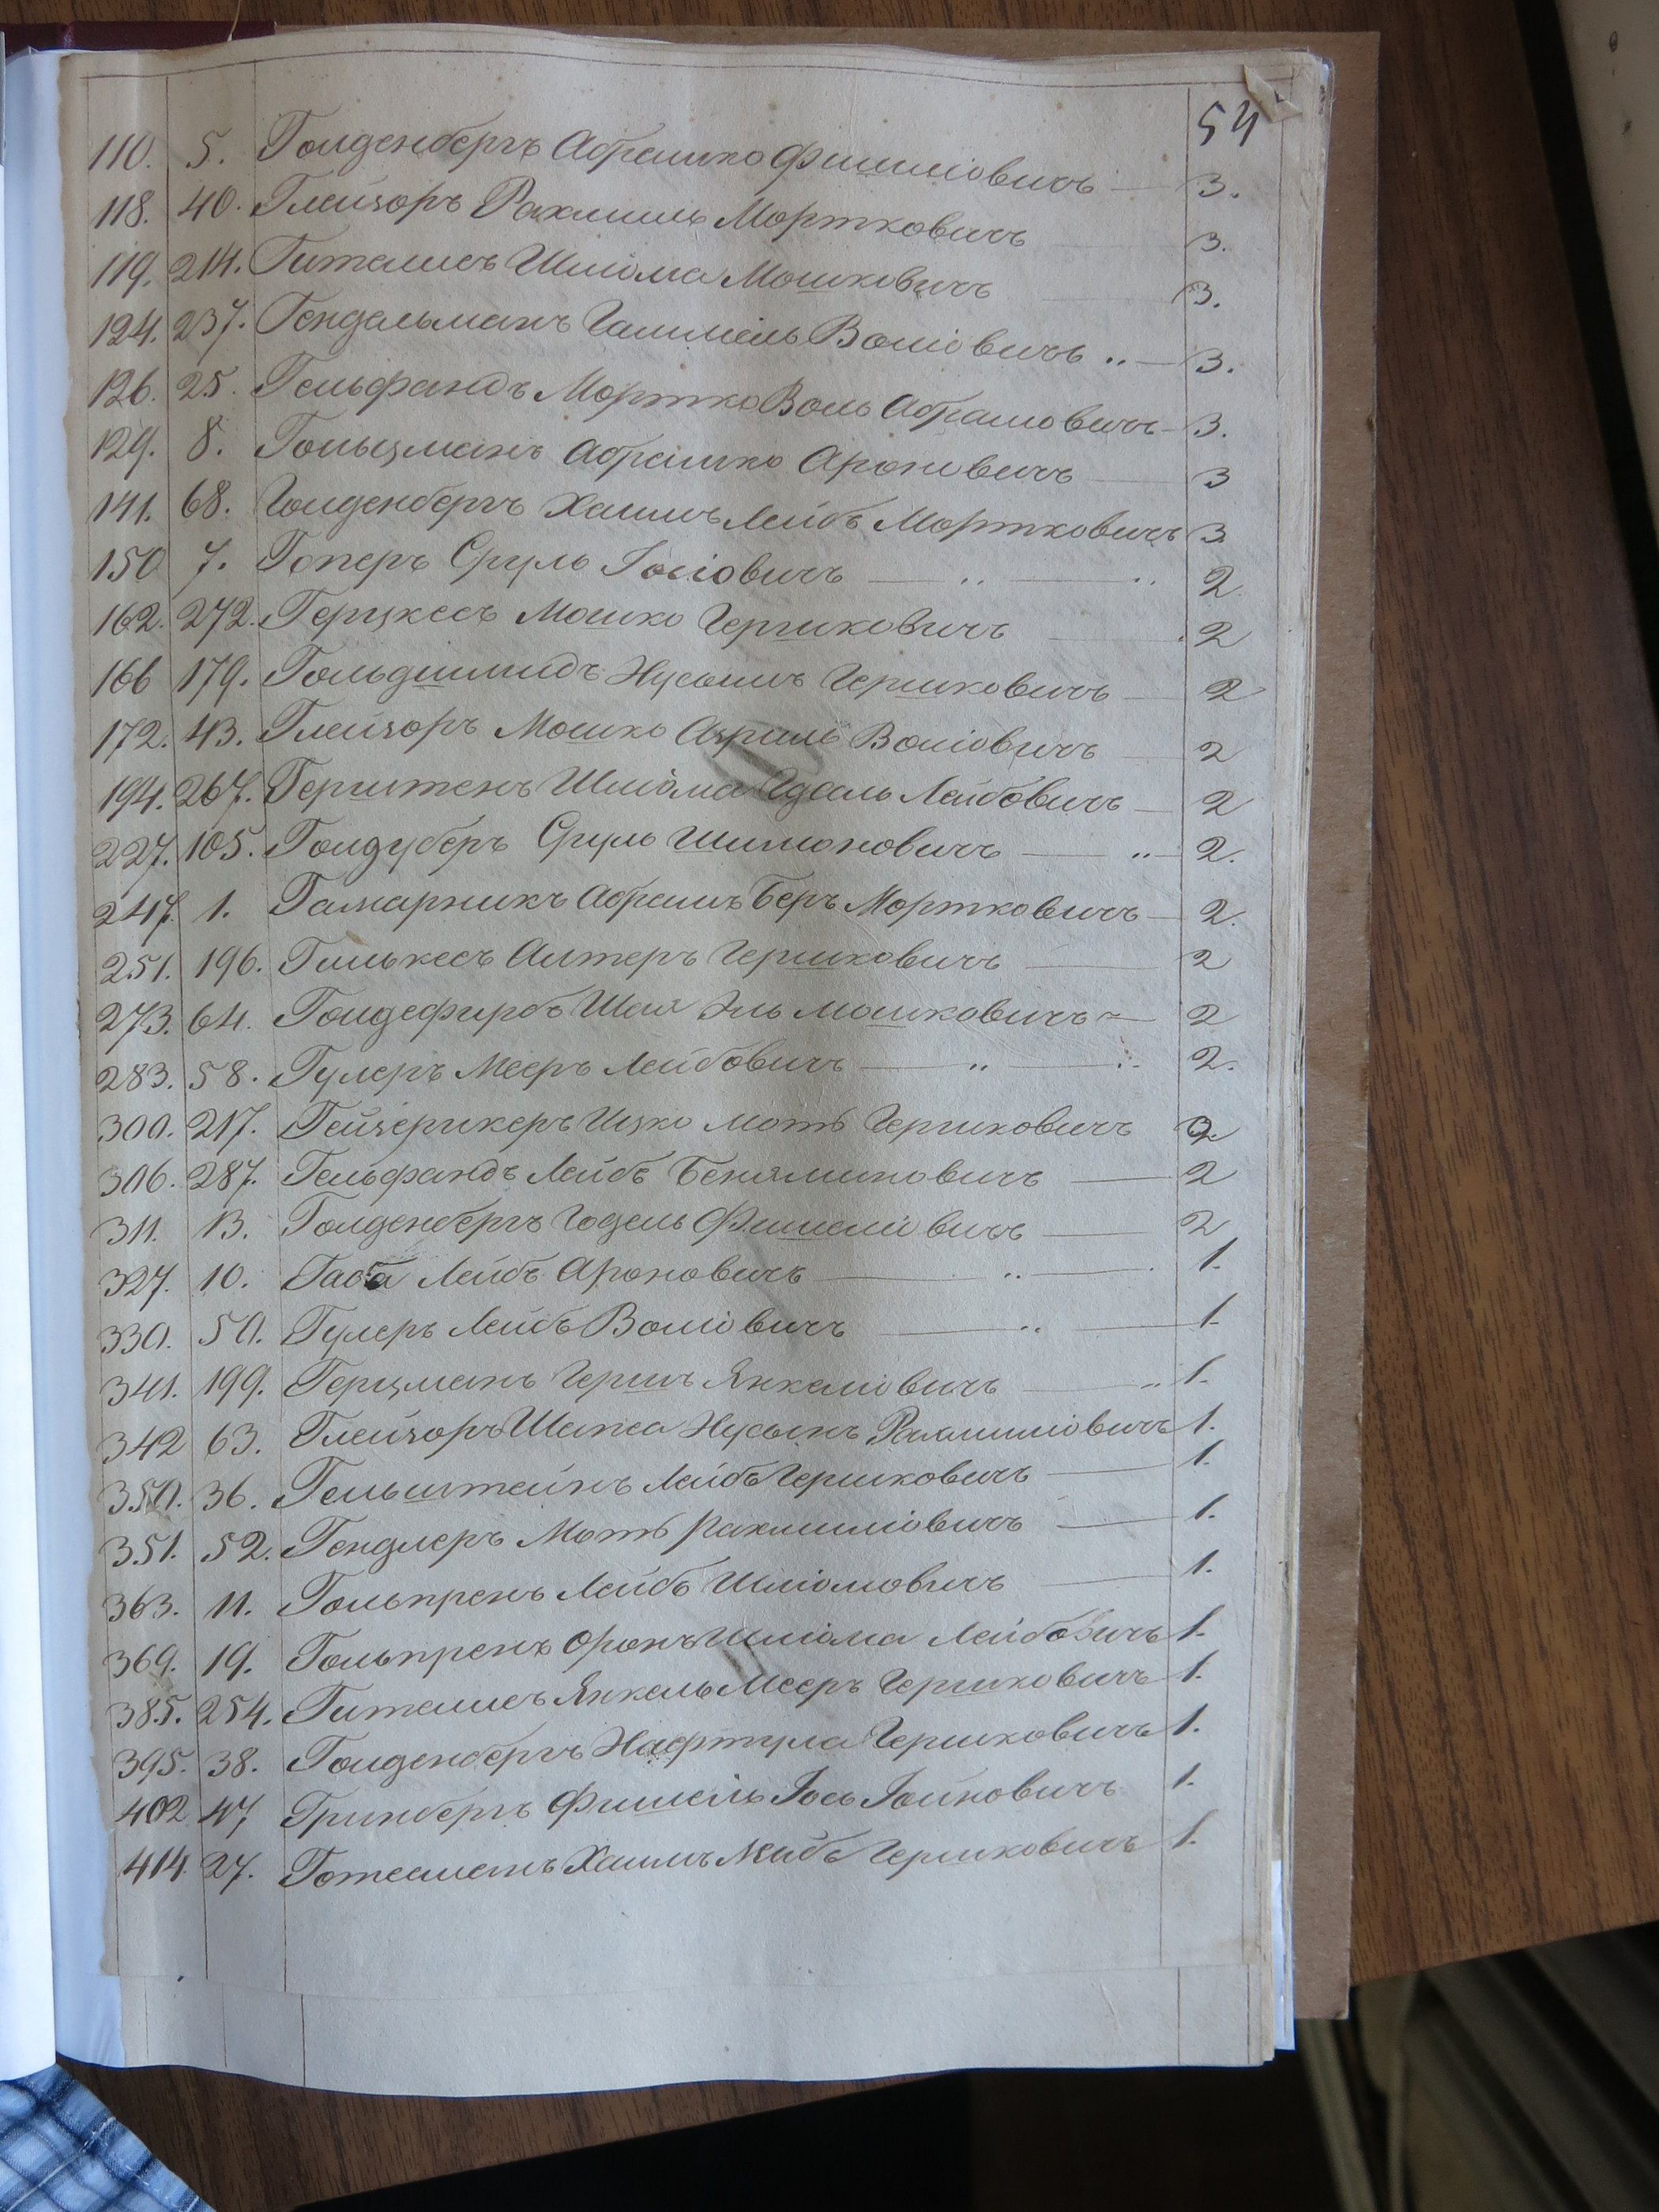 54
110. 5. Голденбергъ Абрамко Фишліовичъ — 3.
118. 40. Глейзоръ Рахмиль Мортковичъ — 3.
119. 214. Гителисъ Шліома Мошковичъ — 3.
124. 237. Гендельманъ Гашмель Воліовичъ „ — 3.
126. 25. Гельфандъ Мортко Воль Абрамовичъ — 3.
129. 8. Гольцманъ Абрамко Ароновичъ — 3
141. 68. Голденбергъ Хаимъ Лейбъ Мортковичъ 3.
150 7. Гоперъ Сруль Іосіовичъ — „ — „ 2.
162. 272. Герцкесъ Мошко Гершковичъ — 2
166 179. Гольдшмидъ Нусымъ Гершковичъ — 2
172. 43. Глейзоръ Мошко Азраль Воліовичъ — 2
194. 267. Герштенъ Шліома Гдаль Лейбовичъ — 2
227. 105. Голдуберъ Сруль Шимоновичъ — „ — 2.
247. 1. Гамарникъ Абрамъ Беръ Мортковичъ — 2.
251. 196. Гилькесъ Алтеръ Гершковичъ — 2
273. 64. Голдефирбъ Шая Эль Мошковичъ — 2
283. 58. Гулеръ Мееръ Лейбовичъ — „ — 2.
300. 217. Гейзерикеръ Ицко Моть Гершковичъ 2
306. 287. Гельфандъ Лейбъ Беняминовичъ — 2
311. 13. Голденбергъ Годель Фишеліовичъ — 2
327. 10. Лейбъ Ароновичъ — „ — 1.
330. 50. Гулеръ Лейбъ Воліовичъ — „ — 1.
341. 199. Герцманъ Гершъ Янкеліовичъ — „ 1.
342 63. Глейзоръ Шапса Нусынъ Рахмиліовичъ 1.
350. 36. Гельштейнъ Лейбъ Гершковичъ — 1.
351. 52. Гендлеръ Моть Рахмиліовичъ — 1.
363. 11. Гольпренъ Лейбъ Шліомовичъ — 1.
369. 19. Гольпренъ Оронъ Шліома Лейбовичъ 1.
385. 254. Гителисъ Янкель Мееръ Гершковичъ 1.
395. 38. Голденбергъ Нафтула Гершковичъ 1.
402 47 Гринбергъ Фишель Іось Іойновичъ 1.
414. 27. Готесманъ Хаимъ Лейбъ Гершковичъ 1.